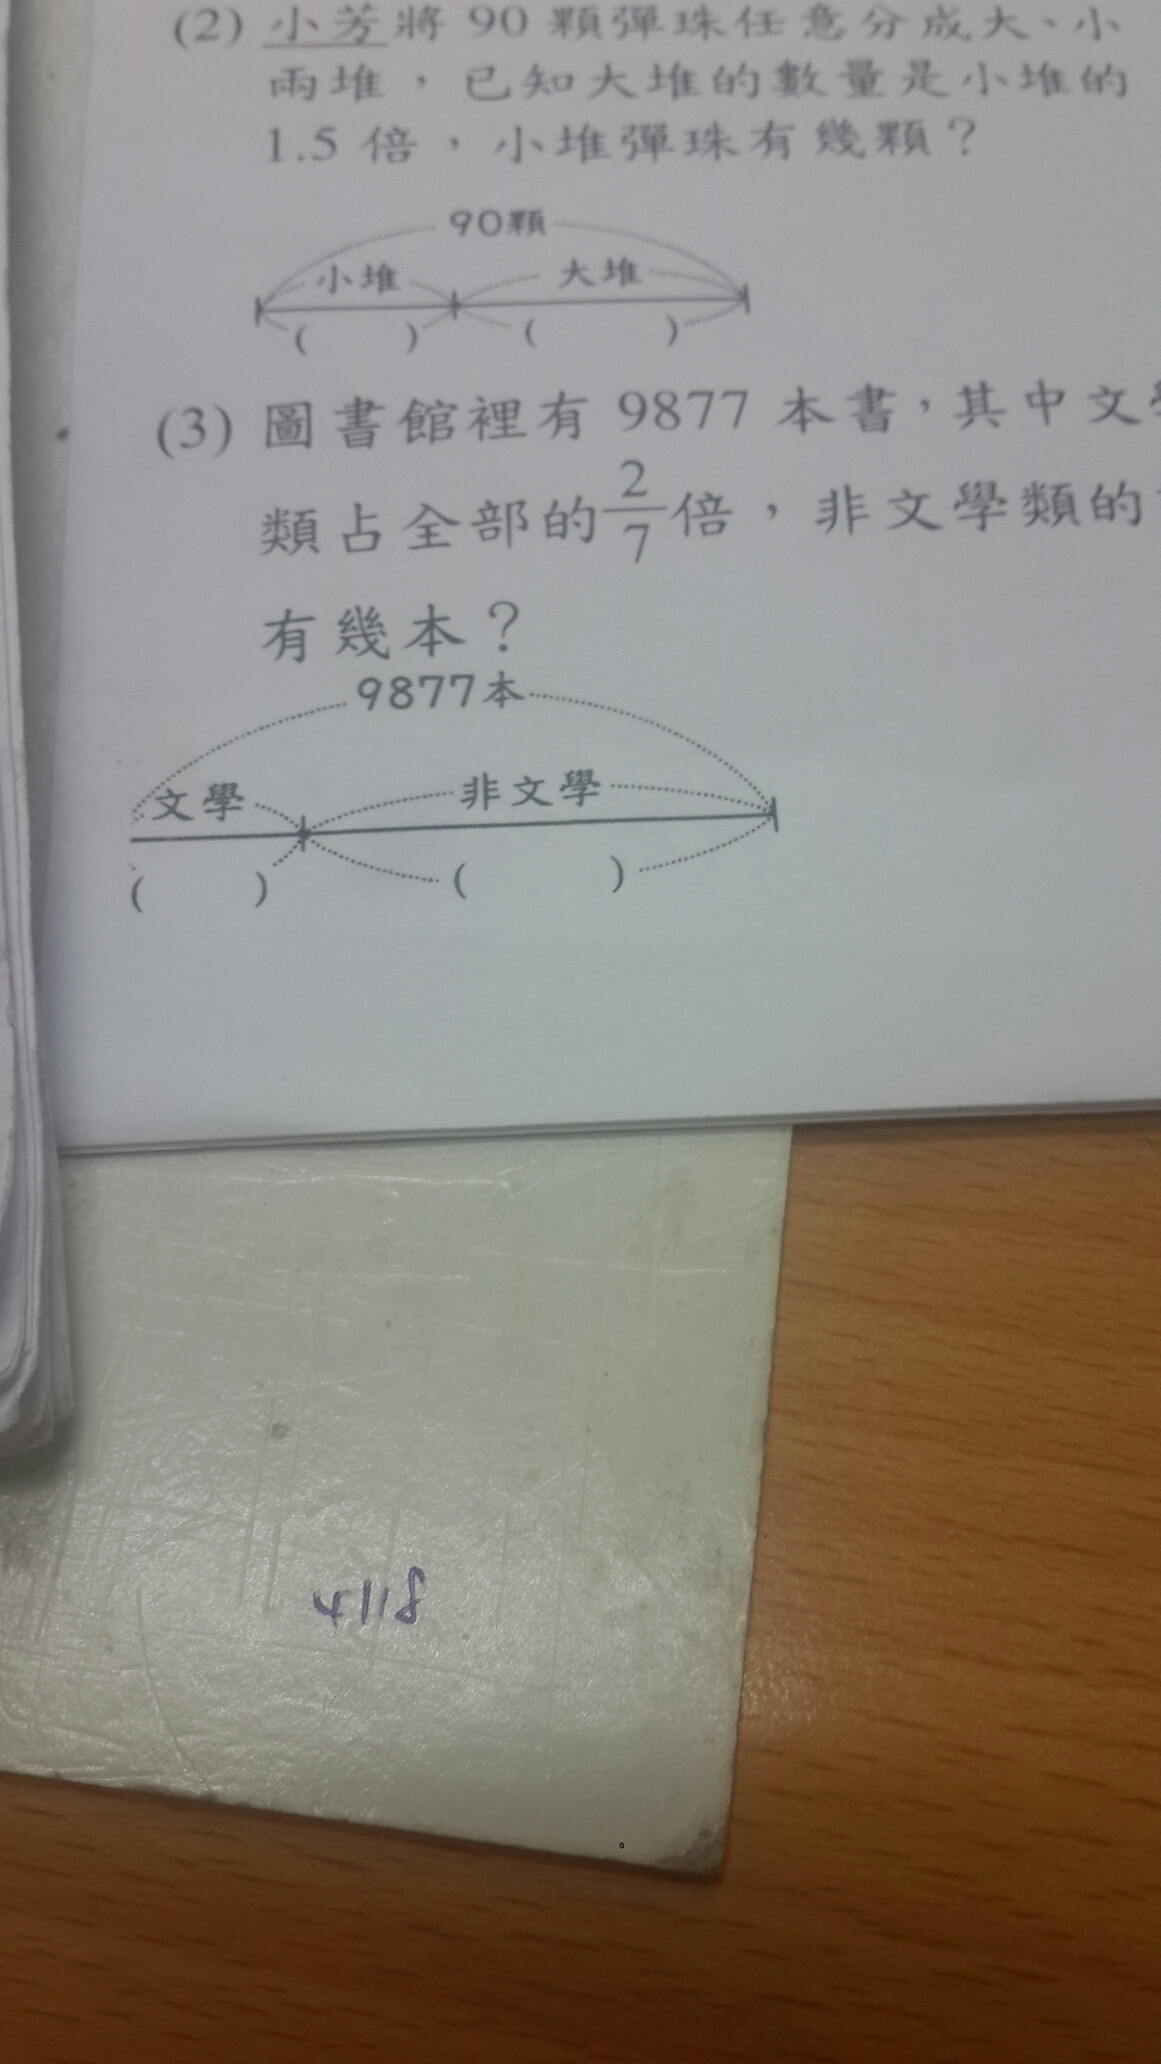 (2) 小芳將 90 顆彈珠任意分成大、小
兩堆，已知大堆的數量是小堆的
1.5 倍，小堆彈珠有幾顆？
90顆
小堆 大堆
( ) ( )
(3) 圖書館裡有 9877 本書，其中文
類占全部的2/7倍，非文學類的
有幾本？
9877本
文學 非文學
( ) ( )
4118